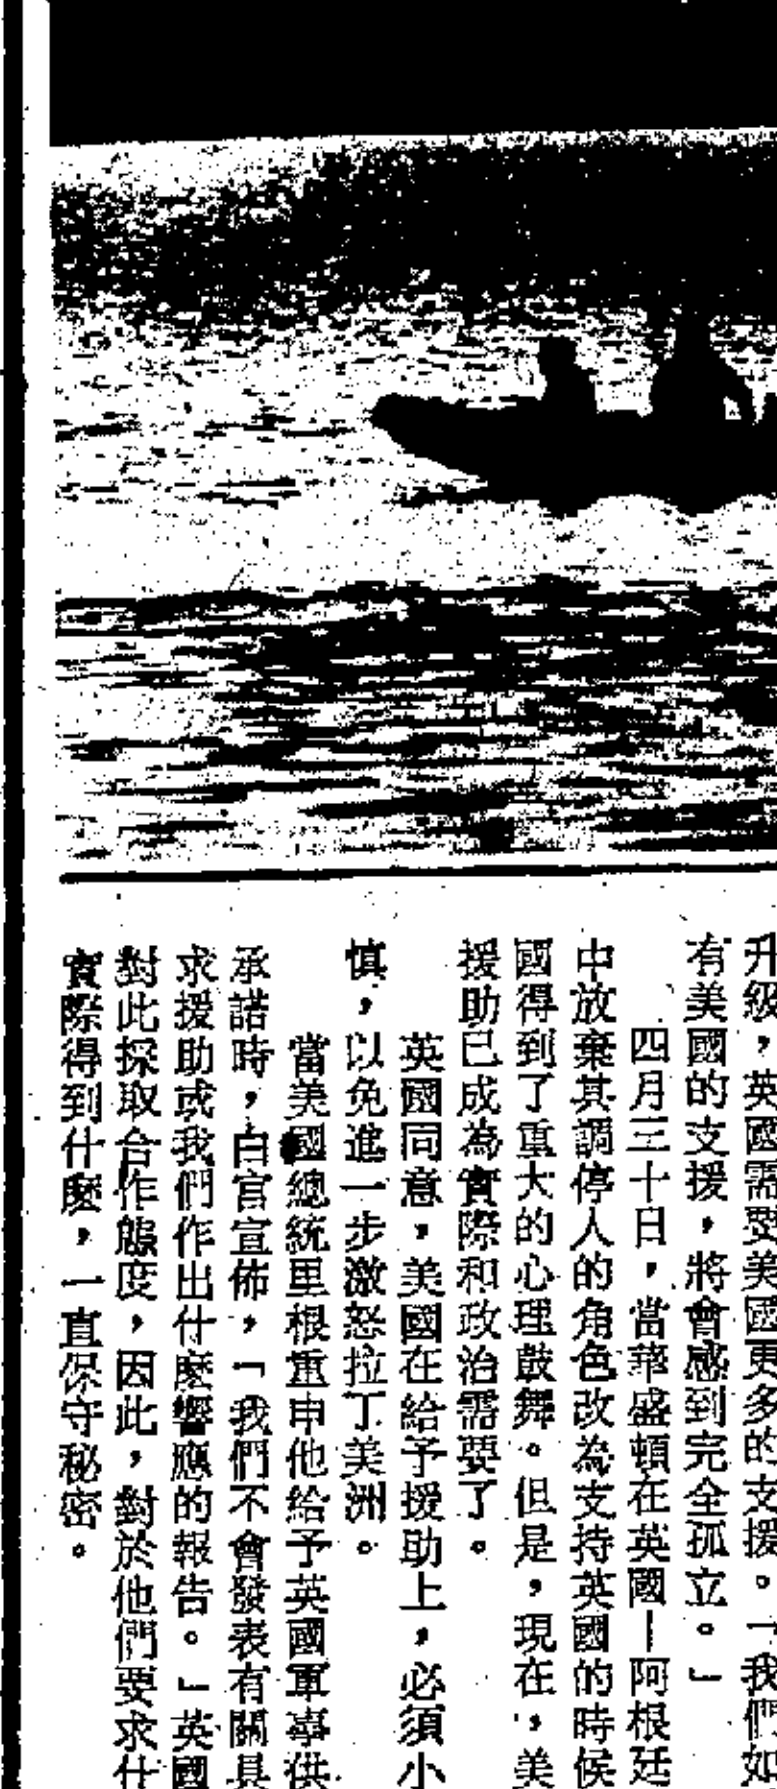 升級，英國需要美國更多的支援。「我們如
有美國的支援，將會感到完全孤立。」
四月三十日，當華盛頓在英國—阿根廷
中放棄其調停人的角色改為支持英國的時候
國得到了重大的心理鼓舞。但是，現在，美
援助已成為實際和政治需要了。
英國同意，美國在給予援助上，必須小
慎，以免進一步激怒拉丁美洲。
當美國總統里根重申他給予英國軍事供
承諾時，白宮宣佈，「我們不會發表有關具
求援助或我們作出什麼響應的報告。」英國
對此採取合作態度，因此，對於他們要求什
實際得到什麼，一直保守秘密。